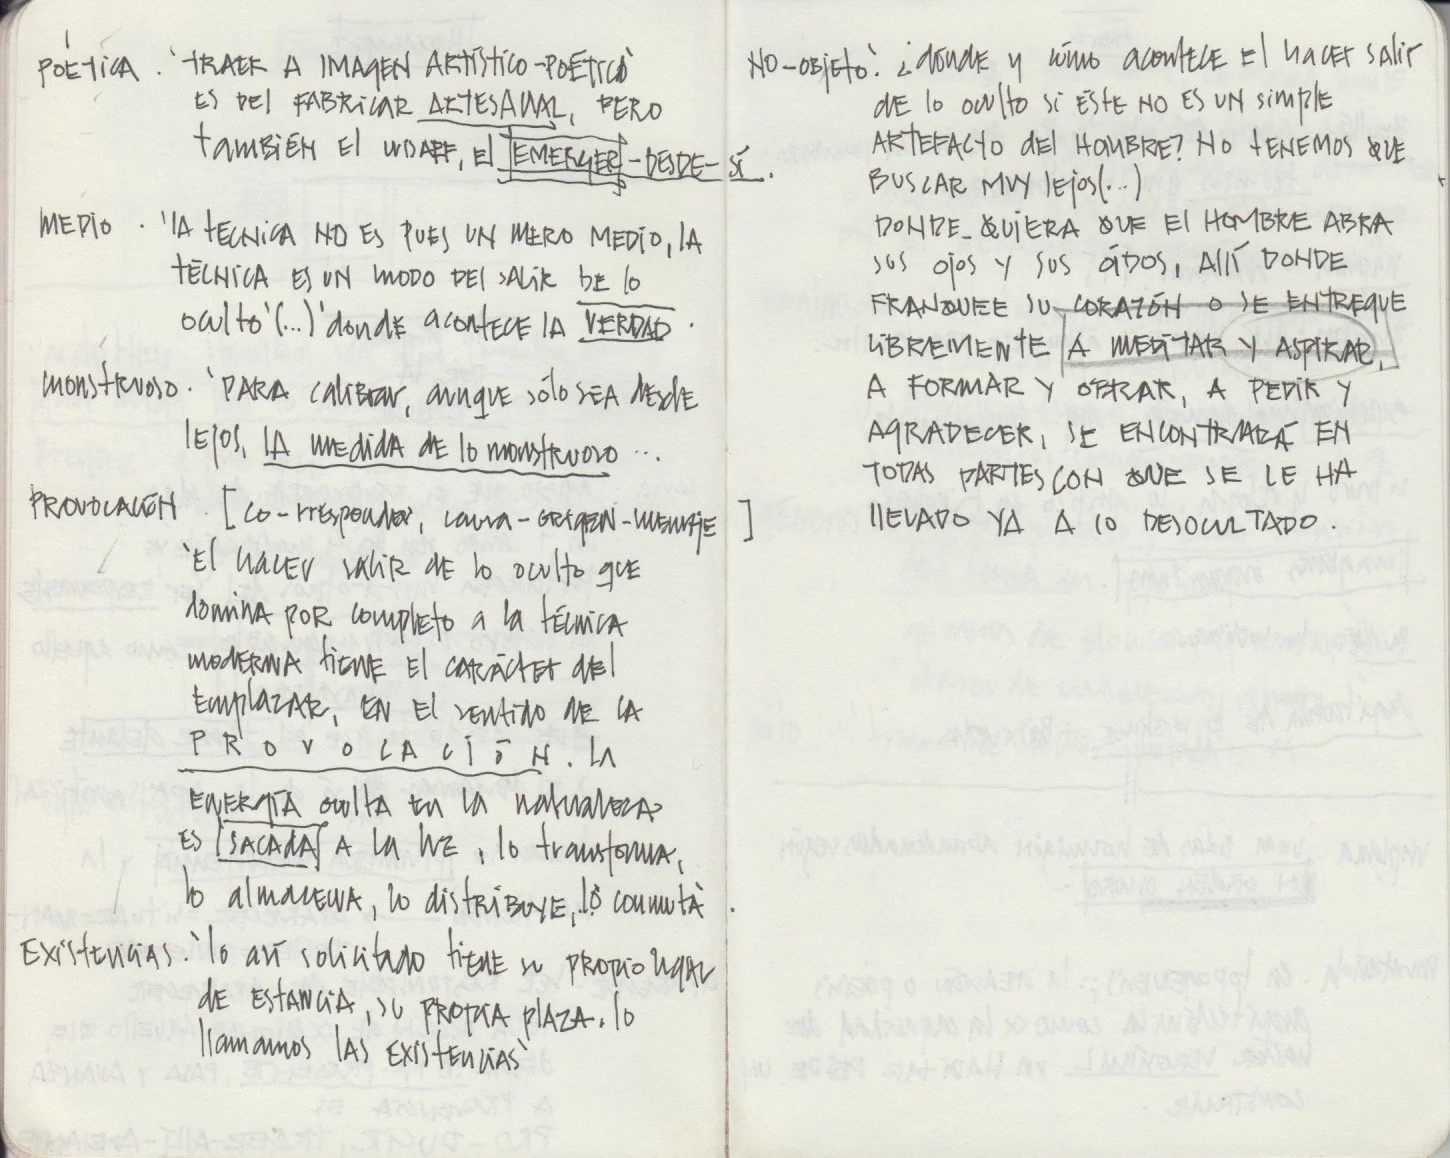 POÉTICA. 'TRAER A IMAGEN ARTÍSTICO-POÉTICO'
ES DEL FABRICAR ARTESANAL, PERO
también EL, EL EMERGER-DESDE-SÍ.
MEDIO. 'LA TÉCNICA NO ES PUES UN MERO MEDIO, LA
TÉCNICA ES UN MODO DEL SALIR DE LO
OCULTO' (...) 'donde acontece LA VERDAD.
MONSTRUOSO. 'PARA CALIBRAR, aunque sólo SEA desde
lejos, LA medida de lo monstruoso ...
PROVOCACIÓN. [co-rresponder, causa-ORIGEN-MENSAJE]
'El hacer salir de lo oculto que
domina POR completo a la técnica
moderna tiene EL CARÁCTER DEL
EMPLAZAR, EN EL SENTIDO DE LA
PROVOCACIÓN. LA
ENERGÍA oculta EN LA naturaleza
ES SACADA A LA luz, lo transforma,
lo almacena, lo DISTRIBUYE, lo conmuta'.
EXISTENCIAS. 'lo así solicitado tiene su PROPIO lugar
DE ESTANCIA, SU PROPIA plaza. lo
llamamos LAS EXISTENCIAS'
NO-OBJETO. '¿dónde y cómo acontece El hacer salir
DE lo oculto si ÉSTE NO ES UN simple
ARTEFACTO del HOMBRE? NO TENEMOS QUE
BUSCAR MUY lejos (...)
DONDE-QUIERA QUE EL HOMBRE ABRA
SUS OJOS Y SUS OÍDOS, AllÍ DONDE
FRANQUEE SU CORAZÓN O SE ENTREGUE
LIBREMENTE A MEDITAR Y ASPIRAR,
A FORMAR Y OBRAR, A PEDIR Y
AGRADECER, SE ENCONTRARÁ EN
TODAS PARTES CON QUE SE LE HA
LLEVADO YA A LO DESOCULTADO.